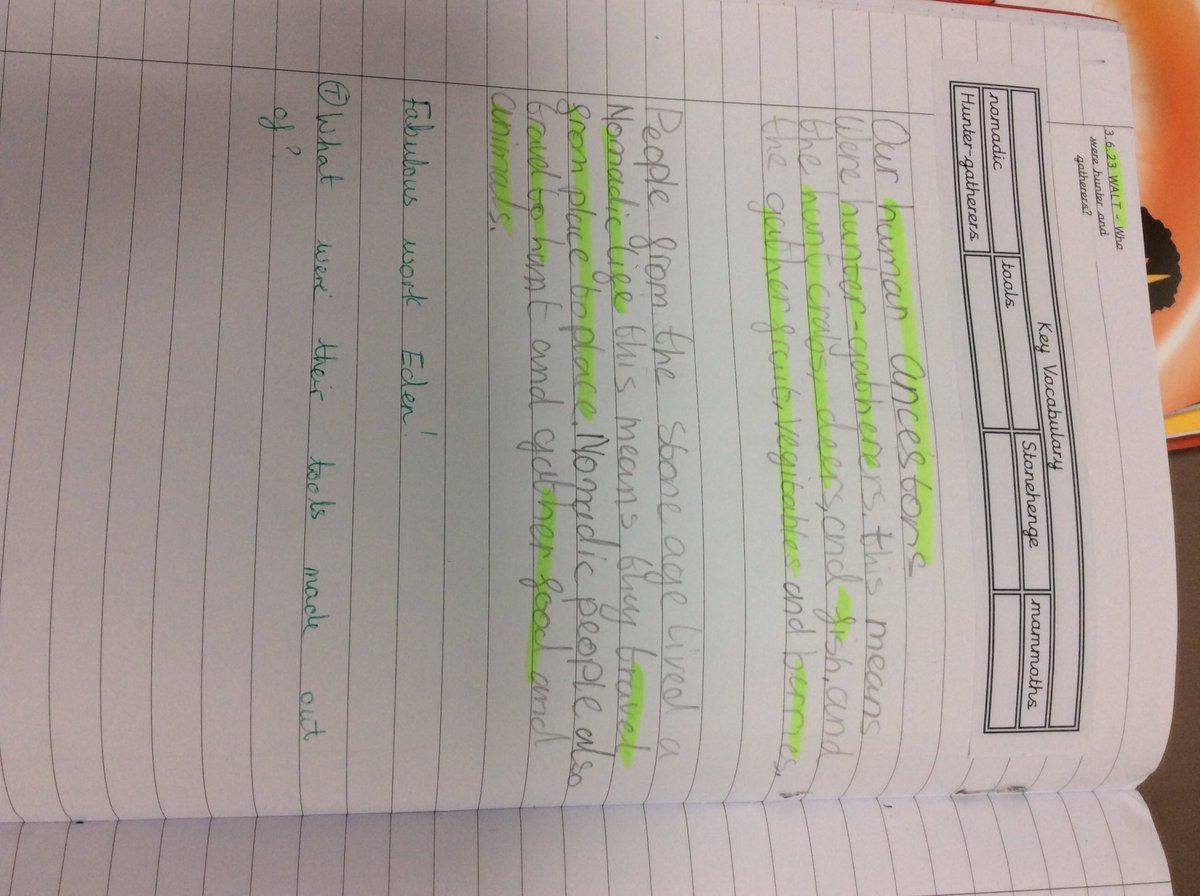 3.6.23 WALT - Who
were hunter and
gatherers?
Key Vocabulary
nomadic tools Stonehenge mammoths
Hunter-gatherers
Our human ancestors
Were hunter-gatherers. this means
the hunt crabs, deers, and fish, and
the gather fruit, vegitables and berries.
People from the stone age lived a
Nomadic life this means they travel
from place to place. Nomadic people also
travel to hunt and gather food and
animals.
Fabulous work Eden!
T What were their tools made out
of?